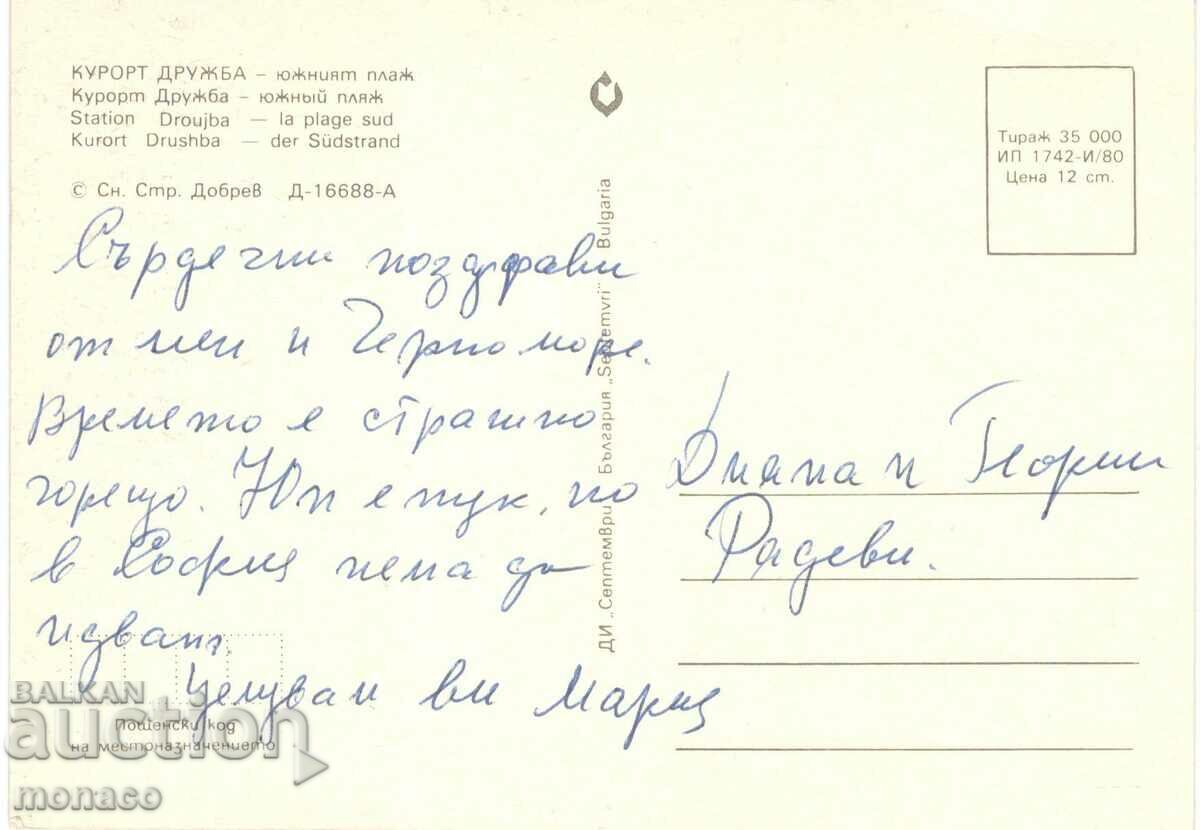 КУРОРТ ДРУЖБА – южният плаж
Курорт Дружба – южный пляж
Station Droujba — la plage sud
Kurort Drushba — der Südstrand
© Сн. Стр. Добрев Д-16688-А
Сърдечни поздрави
от мен и Черно море.
Времето е страшно
горещо. Юли е тук, но
в София нема да
идвам.
Целувам ви Мария
Пощенски код
на местоназначението
ДИ „Септември" България „Septemvri" Bulgaria
Тираж 35 000
ИП 1742-И/80
Цена 12 ст.
Диана и Георги
Радеви.
BALKAN
auction
monaco